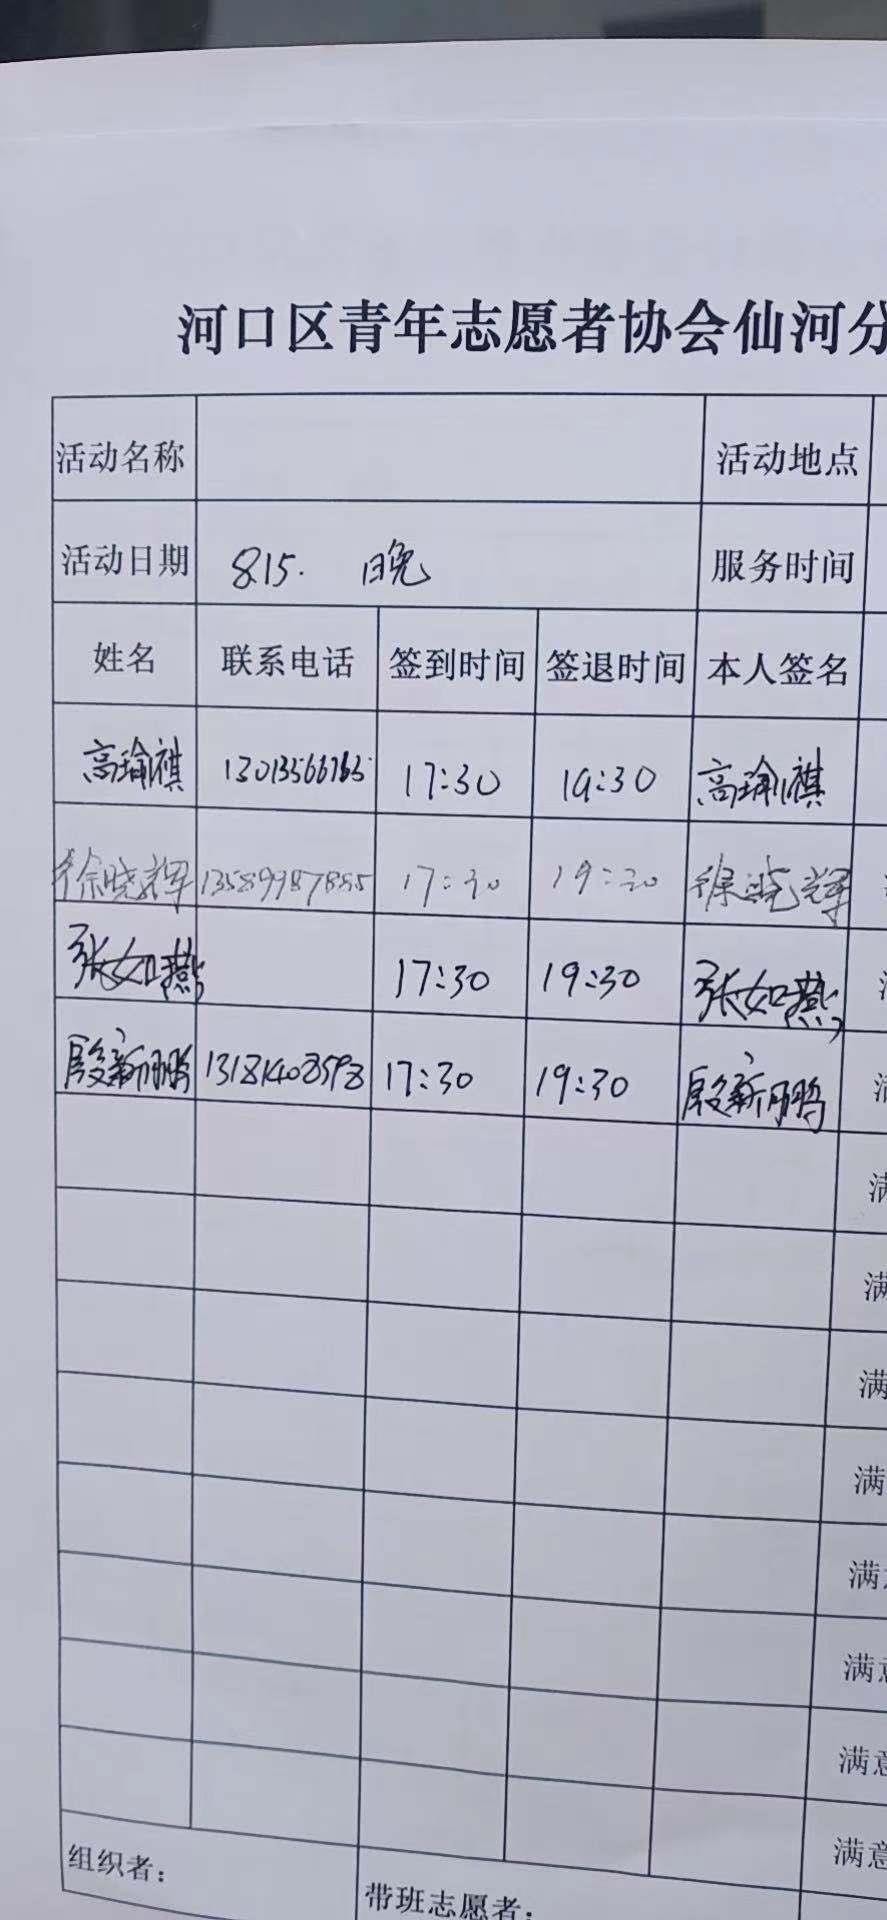 河口区青年志愿者协会仙河分
活动名称 活动地点
活动日期 8.15. 晚 服务时间
姓名 联系电话 签到时间 签退时间 本人签名
高瑜祺 13013566765 17:30 19:30 高瑜祺
徐晓辉 13589987885 17:30 19:30 徐晓辉
张如燕 17:30 19:30 张如燕
殷新鹏 13181408598 17:30 19:30 殷新鹏 满
满
满
满
满
满意
满意
满意
满意
组织者：
带班志愿者：